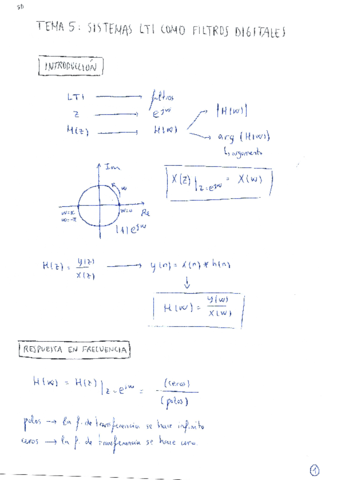 TEMA 5: SISTEMAS LTI COMO FILTROS DIGITALES
INTRODUCCIÓN
LTI → filtros
z → e^jw
H(z) → H(w) → |H(w)|
→ arg {H(w)}
Im
w
Re
|1| e^jw
X(z)|z=e^jw = X(w)
H(z) = Y(z)/X(z) → y(n) = x(n) * h(n)
↓
H(w) = Y(w)/X(w)
RESPUESTA EN FRECUENCIA
H(w) = H(z)|z=e^jw = (ceros)/(polos)
polos → la f. de transferencia se hace infinito
ceros → la f. de transferencia se hace cero
1